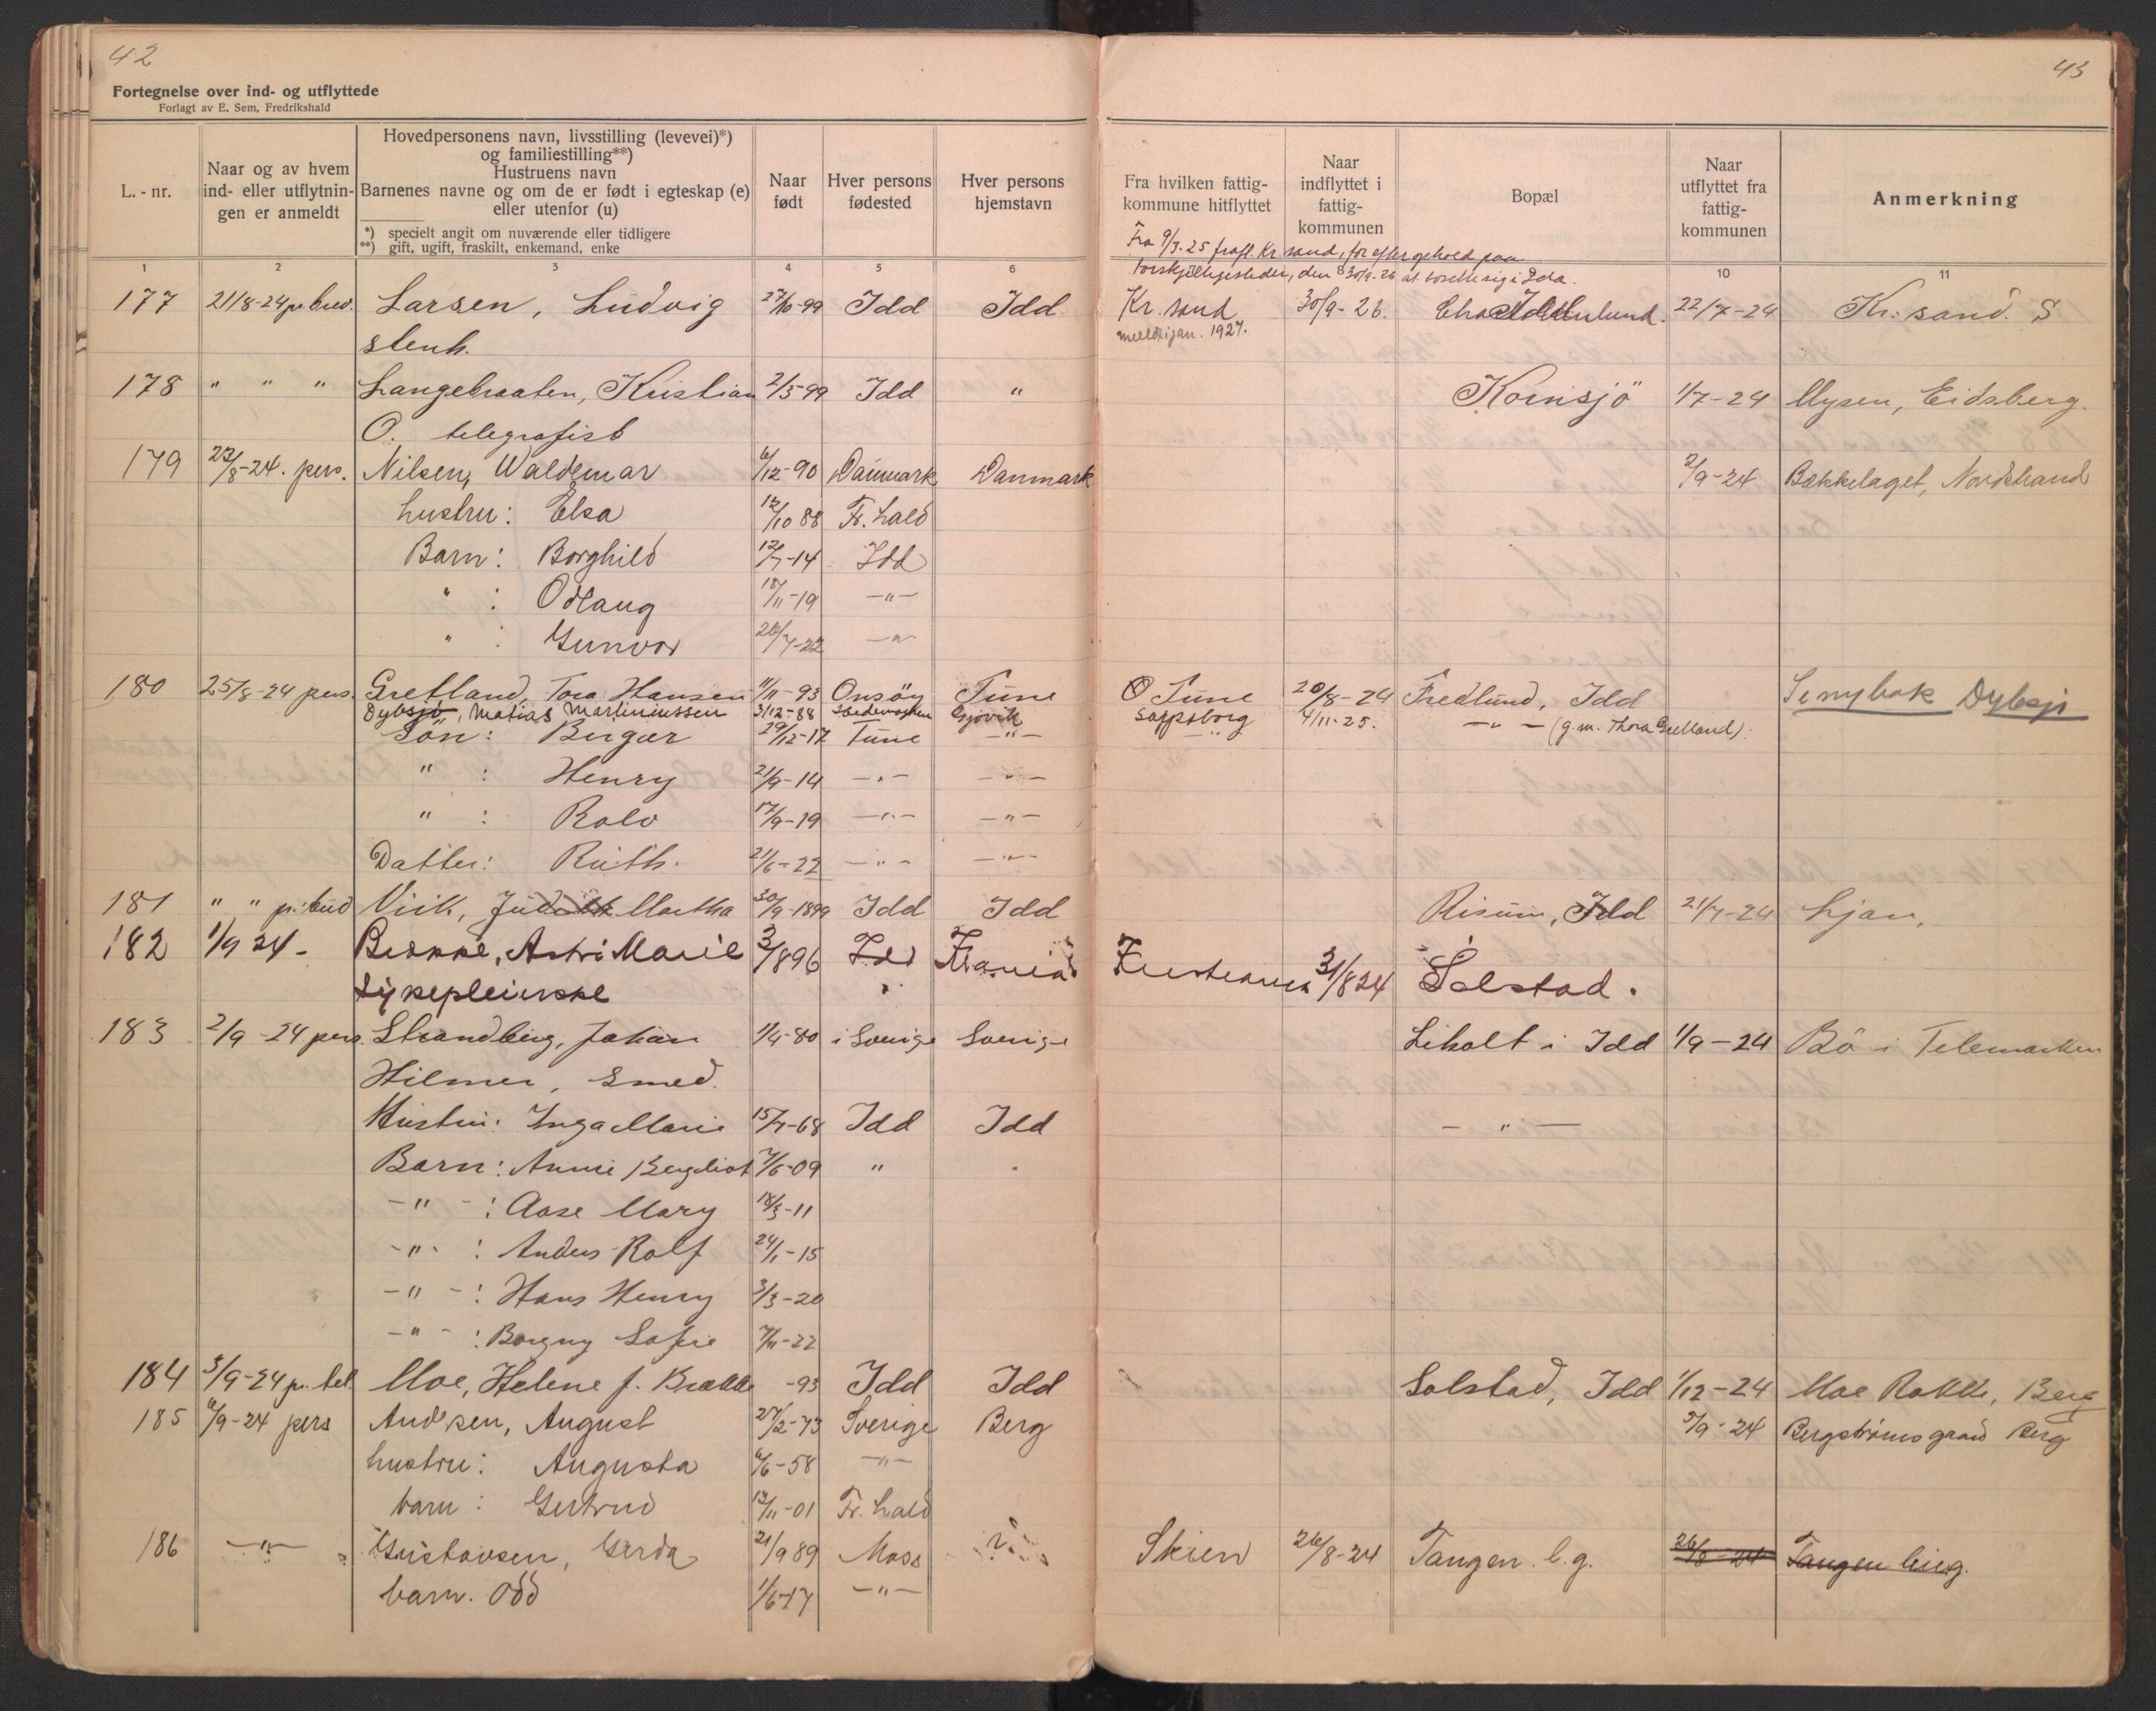 42
43
Fortegnelse over ind- og utflyttede
Forlagt av E. Sem, Fredrikshald
L.-nr.
Naar og av hvem ind- eller utflytnin-gen er anmeldt
Hovedpersonens navn, livsstilling (levevei)*)
og familiestilling**)
Hustruens navn
Barnenes navne og om de er født i egteskap (e)
eller utenfor (u)
*) specielt angit om nuværende eller tidligere
**) gift, ugift, fraskilt, enkemand, enke
Naar født
Hver persons fødested
Hver persons hjemstavn
Fra hvilken fattig-kommune hitflyttet
Naar indflyttet i fattig-kommunen
Bopæl
Naar utflyttet fra fattig-kommunen
Anmerkning
1 2 3 4 5 6 10 11
Fra 9/3-25 frafl. Kr. sand, for efter ophold paa
forskjellige steder, den 30/9-26 at bosætte sig i Idd.
177 21/8-24 pr. bud. Larsen, Ludvig 27/10-99 Idd Idd Kr. sand 30/9-26. 22/7-24 Kr. sand. S
stenh. meldt i jan. 1927.
178 " " " Langebraaten, Kristian 2/5-99 Idd " Kornsjö 1/7-24 Mysen, Eidsberg.
O. telegrafist
179 22/8-24. pers. Nilsen, Waldemar 6/12-90 Danmark Danmark 2/9-24 Bækkelaget, Nordstrand
hustru: Elsa 12/10 88 Fr. hald
Barn: Borghild 12/7-14 Idd
" : Odlaug 18/11-19 -"-
" : Gunvor 26/7-22 -"-
180 25/8-24 pers. Gretland, Tora Hansen 11/11-93 Onsøy Tune Tune 20/8-24 Fredlund, Idd Se ny bok Dybsjø
Dybsjø, Matias Martiniussen 3/12-88 Gjøvik Sarpsborg 4/11-25. -"- (g.m. Thora Gretland).
Søn: Birger 29/12-12 Tune -"-
" : Henry 21/9-14 -"- -"-
" : Rolv 17/9-19 -"- -"-
Datter: Ruth. 21/6-22 -"- -"-
181 " " pr. bud Viik, Judith Martha 30/9-1899 Idd Idd Risum, Idd 21/7-24 Ljan,
182 1/9 24- Brække, Astri Marie 3/896 Idd Kr.ania Kristiania 31/8 24 Solstad.
Sykepleierske
183 2/9-24 pers. Strandberg, Johan 1/4-80 i Sverige Sverige Liholt i Idd 1/9-24 Bö i Telemarken
Hilmer, Smed.
Hustru: Inga Marie 15/7-68 Idd Idd - " -
Barn: Annie Bergliot 7/6-09 "
-"- : Aase Mary 18/3-11
-"- : Anders Rolf 24/1-15
-"- : Hans Henry 3/3-20
-"- : Borgny Sofie 7/11-22
184 3/9-24 pr. tel. Moe, Helene f. Brække -93 Idd Idd Solstad, Idd 1/12-24 Moe Rokke, Berg
185 6/9-24 pers Andersen, August 27/2-73 Sverige Berg 5/9-24 Bergstrømsgaard Berg
hustru: Augusta 6/6-58 -"-
barn: Gertrud 13/11-01 Fr. hald
186 -"- Gustavsen, Gerda 21/9 89 Moss Skien 26/8-24 Tangen b.g. 26/8-24 Tangen brug.
barn. Odd 1/6-17 -"-